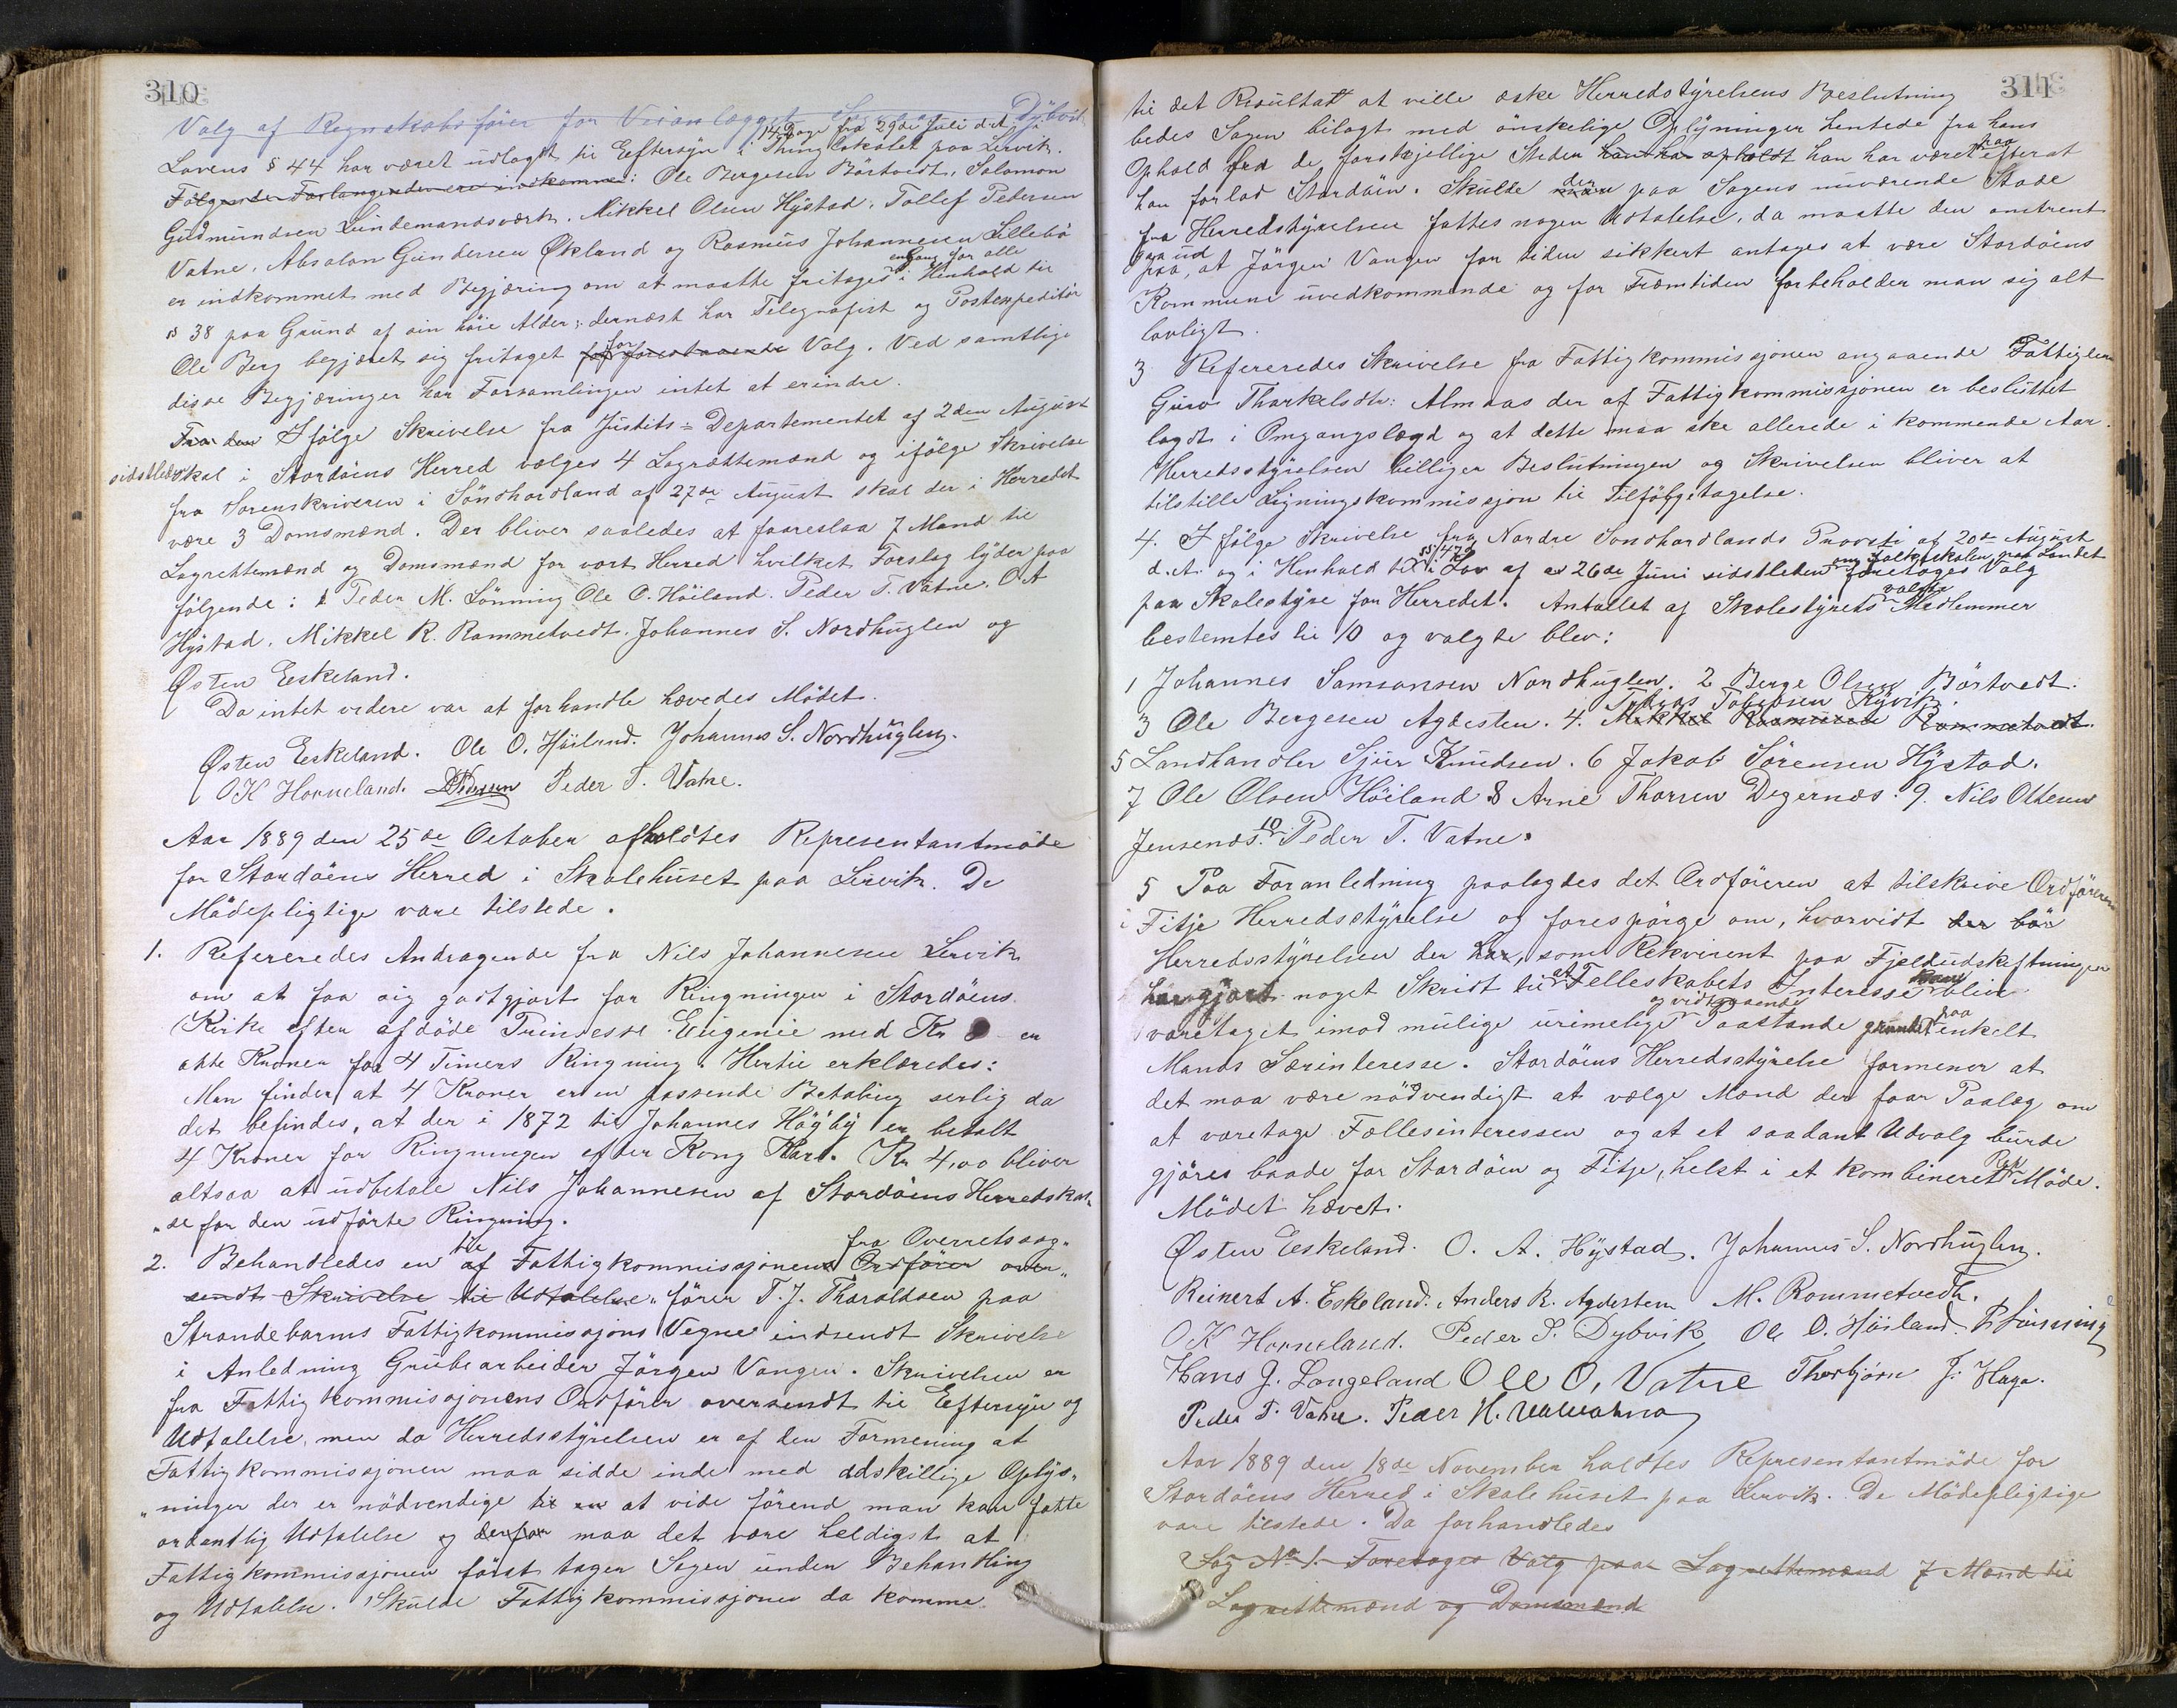 310
Valg af Regnskabsfører for Veianlægget Dybvik
14 Dage fra 29de Juli d. A.
Lovens § 44 har været udlagt til Eeftersyn i Thinglokalet paa Lervik.
Følgender Forlangender ere indkomne: Ole Bergesen Börtvedt, Salomon
Gudmundsen Lundemandsverk. Mikkel Olsen Hystad, Tollef Pedersen
Vatne, Absalon Gundersen Økland og Rasmus Johannesen Lillebö
engang for alle
er indkommet med Begjæring om at maatte fritages i Henhold til
§ 38 paa Grund af sin höie Alder; dernæst har Telegrafist og Postexpeditör
Ole Berg begjæret sig fritaget for forestaaende Valg. Ved samtlige
disse Begjæringer har Forsamlingen intet at erindre.
Fra den Ifölge Skrivelse fra Justits-Departementet af 2den August
sidstleden skal i Stordöens Herred vælges 4 Lagrettemænd og ifölge Skrivelse
fra Sorenskriveren i Söndhordland af 27de August skal der i Herredet
være 3 Domsmænd. Der bliver saaledes at foareslaa 7 Mand til
Lagrettemænd og Domsmænd for vort Herred hvilket Forslag lyder paa
fölgende: Peder M. Lönning Ole O. Höiland. Peder T. Vatne. O. A
Hystad. Mikkel R. Rommetvedt. Johannes S. Nordhuglen og
Østen Eeskeland.
Da intet videre var at forhandle hævedes Mödet.
Østen Eeskeland. Ole O. Höiland. Johannes S. Nordhuglen.
O K Horneland. Peder T. Vatne.
Aar 1889 den 25de October afholdtes Representantmöde
for Stordöens Herred i Skolehuset paa Lervik. De
Mödepligtige vare tilstede.
1. Refereredes Andragende fra Nils Johannesen Lervik
om at faa sig godtgjort for Ringningen i Stordöens
Kirke efter afdöde Prindsesse Eugenie med Kr 8 er
otte Kroner for 4 Timers Ringning. Hertil erklæredes:
Man finder at 4 Kroner er en passende Betaling serlig da
det befindes, at der i 1872 til Johannes Höyby er betalt
4 Kroner for Ringningen efter Kong Karl. Kr 4,00 bliver
altsaa at udbetale Nils Johannesen af Stordöens Herredskas„
„se for den udförte Ringning.
til fra Overretssag„
2. Behandledes en af Fattigkommissjonens Ordförer over„
sendt Skrivelse til Udtalelse „förer T. J. Tharaldsen paa
Strandebarms Fattigkommissjons Vegne indsendt Skrivelse
i Anledning Grubearbeider Jörgen Vangen. Skrivelsen er
fra Fattigkommissjonens Ordförer oversendt til Eeftersyn og
Udtalelse, men da Herredsstyrelsen er af den Formening at
Fattigkommissjonen maa sidde inde med adskillige Oplys„
„ninger der er nödvendige til en at vide förend man kan fatte
ordentlig Udtalelse og derfor maa det være heldigst at
Fattigkommissjonen först tager Sagen under Behandling
og Udtalelse. Skulde Fattigkommissjonen da komme
311
til det Resultat at ville æske Herredstyrelsens Beslutning
bedes Sagen bilagt med önskelige Oplysninger hentede fra hans
paa
Ophold fra de forskjellige Steder han har opholdt han har været efterat
der
han forlod Stordöen. Skulde paa Sagens nuværende Stade
fra Herredstyrelsen fattes nogen Udtalelse, da maatte den omtrent
gaa ud
paa, at Jörgen Vangen for tiden sikkert antages at være Stordöens
Kommune uvedkommende og for Fremtiden forbeholder man sig alt
lovligt.
3 Refereredes Skrivelse fra Fattigkommissjonen angaaende Fattiglem
Guro Thorkelsdtr: Almaas der af Fattigkommissjonen er besluttet
lagdt i Omgangslægd og at dette maa ske allerede i kommende Aar.
Herredsstyrelsen billiger Beslutningen og Skrivelsen bliver at
tilstille Ligningskommissjon til Tilfölgetagelse.
4. Ifölge Skrivelse fra Nordre Söndhordlands Provsti af 20de August
§§ 47 om Folkeskolen paa Landet
d. A. og i Henhold til i Lov af 26de Juni sidstleden foretoges Valg
valgte
paa Skolestyre for Herredet. Antallet af Skolestyrets Medlemmer
bestemtes til 10 og valgte blev:
1 Johannes Samsonsen Nordhuglen. 2 Berge Olsen Börtvedt.
Tobias Tobiasen Rÿvik.
3 Ole Bergesen Agdesten. 4. Mikkel Rasmussen Rommetvedt.
5 Landhandler Sjur Knudsen. 6 Jakob Sörensen Hystad.
7 Ole Olsen Höiland 8 Arne Thorsen Degernæs. 9. Nils Ottesen
Jensenæs. 10 Peder T. Vatne.
5 Paa Foranledning paalagdes det Ordföreren at tilskrive Ordföreren
i Fitje Herredsstyrelse og forespörge om, hvorvidt der bör
Herredsstyrelsen der har, som Rekvirent paa Fjeldudskiftningen
at kan
har gjort noget Skridt til Felleskabets Interesse blive
og vidtgaaende paa
varetaget imod mulige urimelige Paastande grundet enkelt
Mands Særinteresse. Stordöens Herredsstyrelse formener at
det maa være nödvendigt at vælge Mænd der faar Paalæg om
at varetage Fællesinteressen og at et saadant Udvalg burde
Rep.
gjöres baade for Stordöen og Fitje, helst i et kombineret Möde.
Mödet hævet.
Østen Eeskeland. O. A. Hystad. Johannes S. Nordhuglen.
Reinert A. Eskeland. Anders R. Agdesten M. Rommetvedt.
O K Horneland. Peder P. Dybvik Ole O. Höiland. P Lönning
Hans J. Langeland Ole O. Vatne Thorbjörn J. Haga.
Peder T. Vatne. Peder H.
Aar 1889 den 18de November holdtes Representantmöde for
Stordöens Herred i Skolehuset paa Lervik. De Mödepligtige
vare tilstede. Da forhandledes
Sag No 1. Foretoges Valg paa Lagrettemænd 7 Mand til
Lagrettemænd og Domsmænd